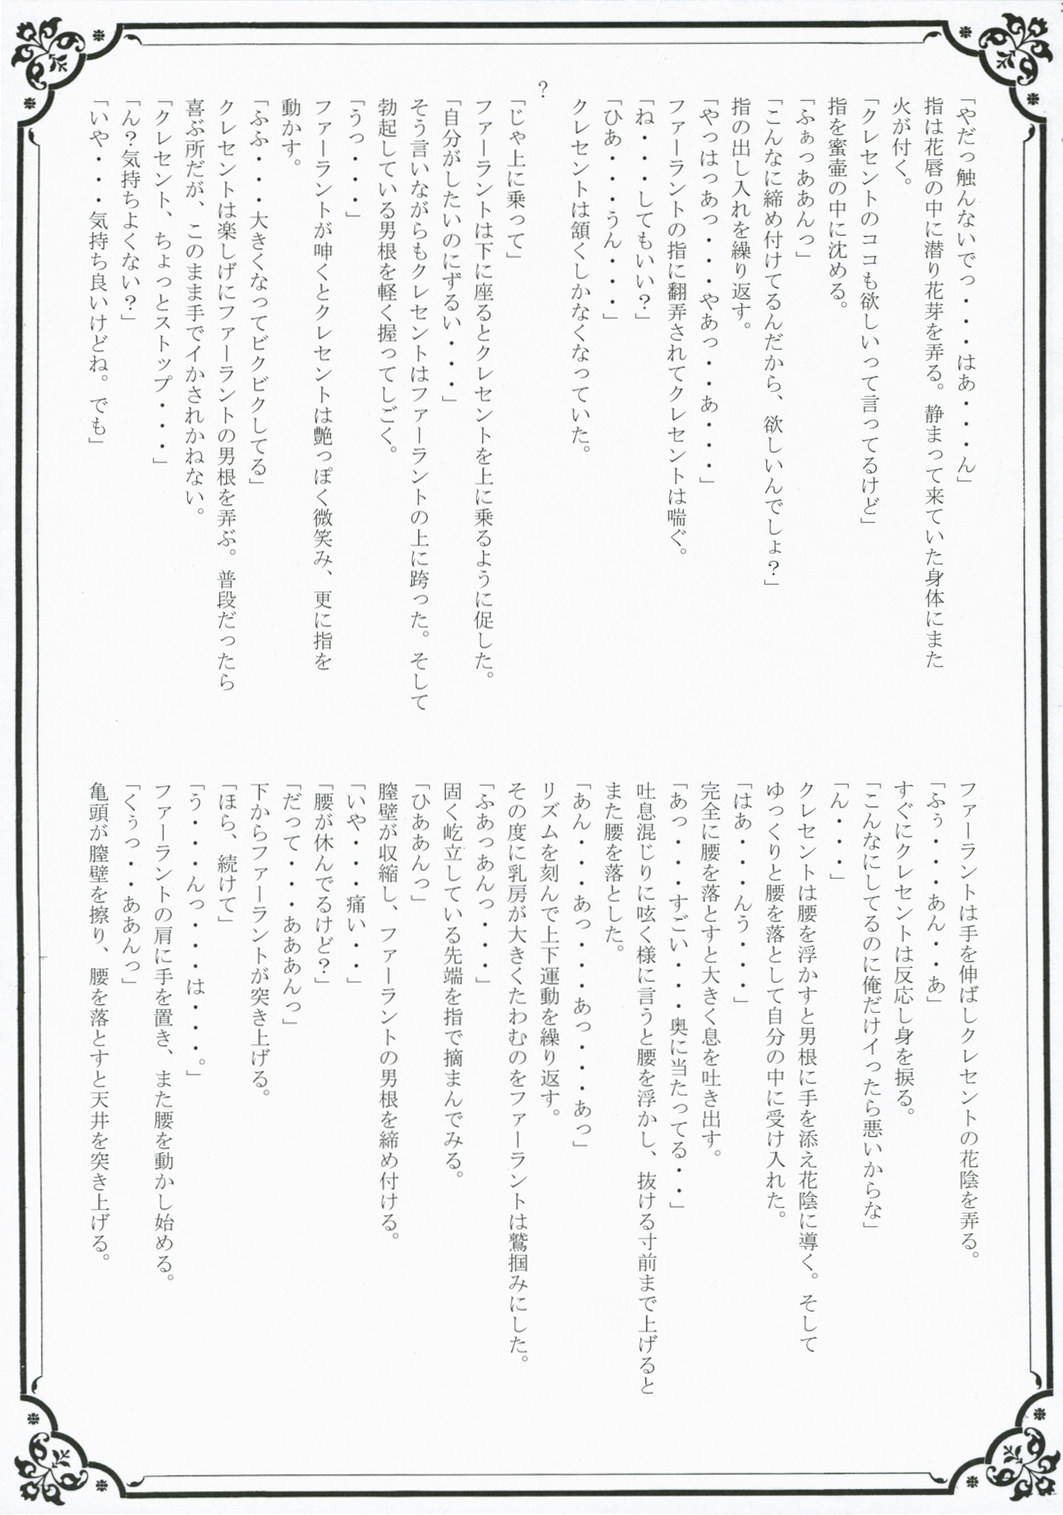 「やだっ触んないでっ・・・はぁ・・・ん」
指は花唇の中に潜り花芽を弄る。静まって来ていた身体にまた
火が付く。
「クレセントのココも欲しいって言ってるけど」
指を蜜壷の中に沈める。
「ふぁっああんっ」
「こんなに締め付けてるんだから、欲しいんでしょ？」
指の出し入れを繰り返す。
「やっはっあっ・・・やあっ・・あ・・・」
ファーラントの指に翻弄されてクレセントは喘ぐ。
「ね・・・してもいい？」
「ひあ・・・うん・・・」
クレセントは頷くしかなくなっていた。
？
「じゃ上に乗って」
ファーラントは下に座るとクレセントを上に乗るように促した。
「自分がしたいのにずるい・・・」
そう言いながらもクレセントはファーラントの上に跨った。そして
勃起している男根を軽く握ってしごく。
「うっ・・・」
ファーラントが呻くとクレセントは艶っぽく微笑み、更に指を
動かす。
「ふふ・・・大きくなってビクビクしてる」
クレセントは楽しげにファーラントの男根を弄ぶ。普段だったら
喜ぶ所だが、このまま手でイかされかねない。
「クレセント、ちょっとストップ・・・」
「ん？気持ちよくない？」
「いや・・・気持ち良いけどね。でも」
ファーラントは手を伸ばしクレセントの花陰を弄る。
「ふぅ・・・あん・・あ」
すぐにクレセントは反応し身を捩る。
「こんなにしてるのに俺だけイったら悪いからな」
「ん・・・」
クレセントは腰を浮かすと男根に手を添え花陰に導く。そして
ゆっくりと腰を落として自分の中に受け入れた。
「はあ・・・んう・・・」
完全に腰を落とすと大きく息を吐き出す。
「あっ・・・すごい・・・奥に当たってる・・」
吐息混じりに呟く様に言うと腰を浮かし、抜ける寸前まで上げると
また腰を落とした。
「あん・・・あっ・・・あっ・・・あっ」
リズムを刻んで上下運動を繰り返す。
その度に乳房が大きくたわむのをファーラントは鷲掴みにした。
「ふあっあんっ・・・」
固く屹立している先端を指で摘まんでみる。
「ひああんっ」
膣壁が収縮し、ファーラントの男根を締め付ける。
「いや・・・痛い・・」
「腰が休んでるけど？」
「だって・・・あああんっ」
下からファーラントが突き上げる。
「ほら、続けて」
「う・・・んっ・・・は・・・。」
ファーラントの肩に手を置き、また腰を動かし始める。
「くぅっ・・ああんっ」
亀頭が膣壁を擦り、腰を落とすと天井を突き上げる。